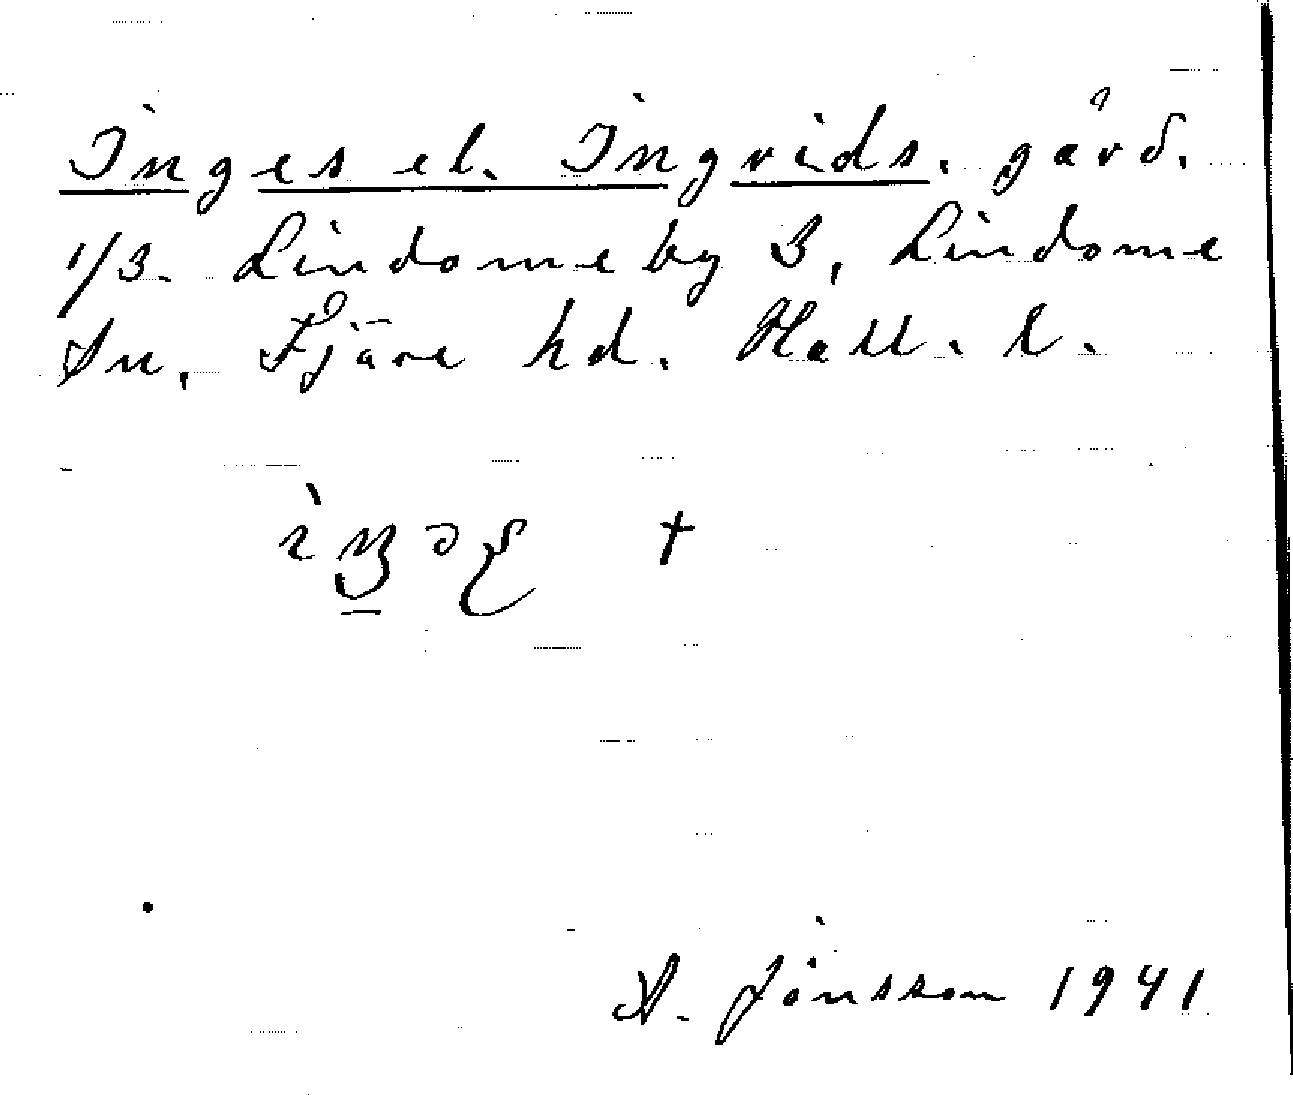 Inges el. Ingrids. gård.
1/3. Lindomeby 3, Lindome
sn. Fjäre hd. Hall. l.
A. Jönsson 1941